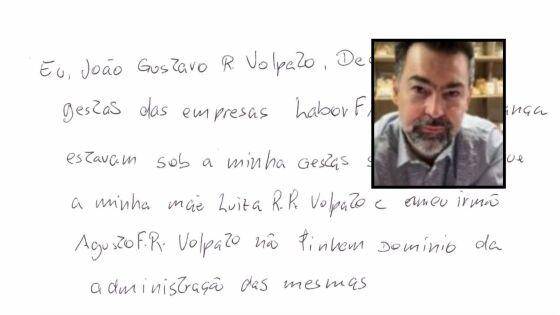 Eu, João Gustavo R Volpato, De
gestas das empresas LaborF
estavam sob a minha Gestas
a minha mãe Luiza R.R. Volpato e emeu irmão
Agusto F.R. Volpato não tinhem Domínio da
administração das mesmas